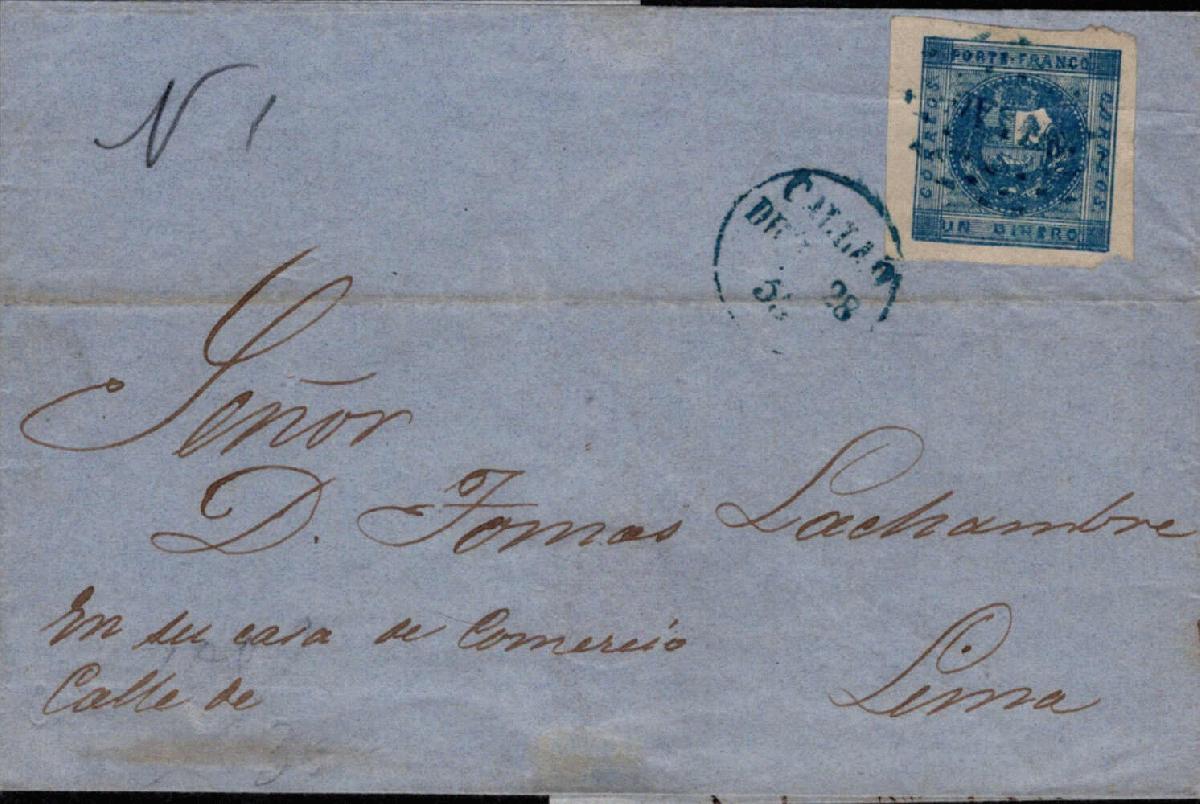 N 1
PORTE FRANCO
CORREOS
UN DINERO
CALLAO
28
Señor
D. Tomas Lachambre
En su casa de Comercio
Calle de
Lima